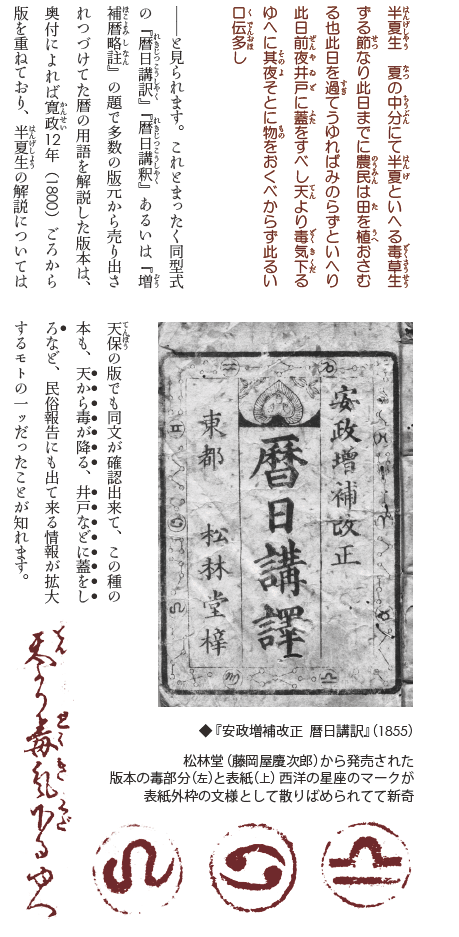 半夏生　夏の中分にて半夏といへる毒草生
ずる節なり此日までに農民は田を植おさむ
る也此日を過てうゆればみのらずといへり
此日前夜井戸に蓋をすべし天より毒気下る
ゆへに其夜そとに物をおくべからず此るい
口伝多し
――と見られます。これとまったく同型式
の『暦日講訳』『暦日講釈』あるいは『増
補暦略註』の題で多数の版元から売り出さ
れつづけてた暦の用語を解説した版本は、
奥付によれば寛政12年（1800）ごろから
版を重ねており、半夏生の解説については
天保の版でも同文が確認出来て、この種の
本も、天から毒が降る、井戸などに蓋をし
ろなど、民俗報告にも出て来る情報が拡大
するモトの一ッだったことが知れます。
安政増補改正
暦日講譯
東都　松林堂梓
◆『安政増補改正 暦日講訳』（1855）
松林堂（藤岡屋慶次郎）から発売された
版本の毒部分（左）と表紙（上）西洋の星座のマークが
表紙外枠の文様として散りばめられてて新奇
天より毒気下るゆへ
♌ ♋ ♎